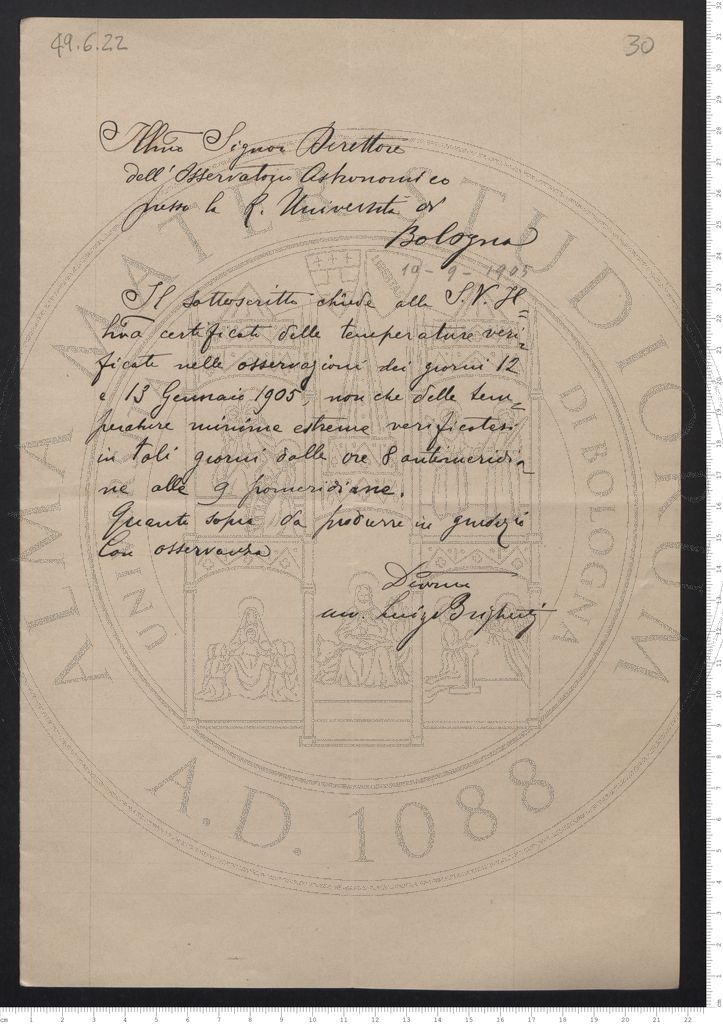 49.6.22
30
Illmo Signor Direttore
dell'Osservatorio Astronomico
presso la R. Università di
Bologna
19-9-1905
Il sottoscritto chiede alla S.V. Il=
lma certificato delle temperature veri=
ficate nelle osservazioni dei giorni 12
e 13 Gennaio 1905, non che delle tem=
perature minime estreme verificatesi
in tali giorni dalle ore 8 antimeridia=
ne alle 9 pomeridiane.
Quanto sopra da produrre in giudizio
Con osservanza
Devmo
avv. Luigi
ALMA MATER STUDIORUM
UNI DI BOLOGNA
A.D. 1088